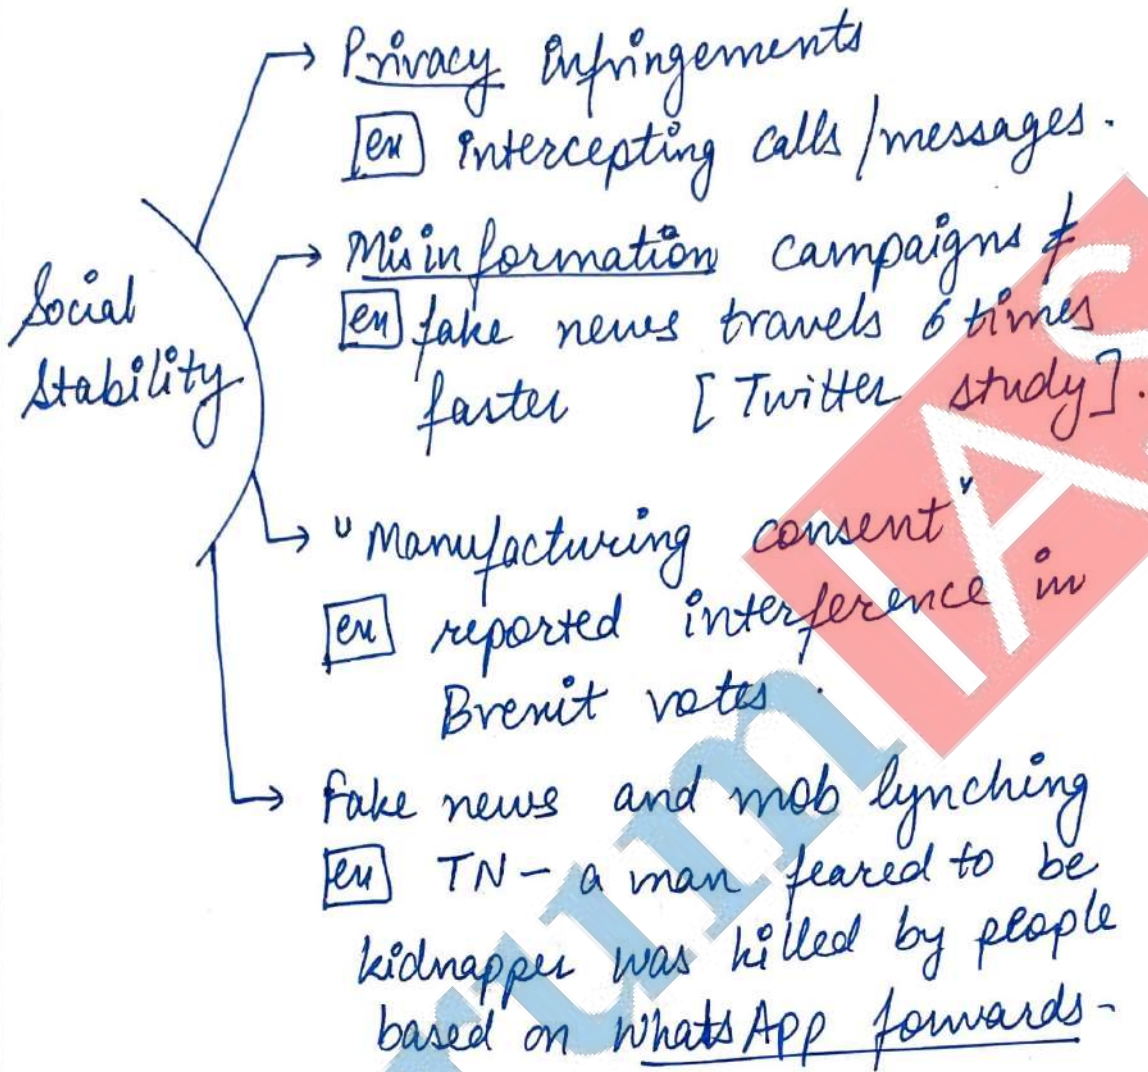 Privacy infringements
ex intercepting calls/messages.
Social
Stability
Misinformation campaigns &
ex fake news travels 6 times
faster [Twitter study].
"Manufacturing consent"
ex reported interference in
Brexit votes.
Fake news and mob lynching
ex TN - a man feared to be
kidnapper was killed by people
based on WhatsApp forwards-
rum IAS